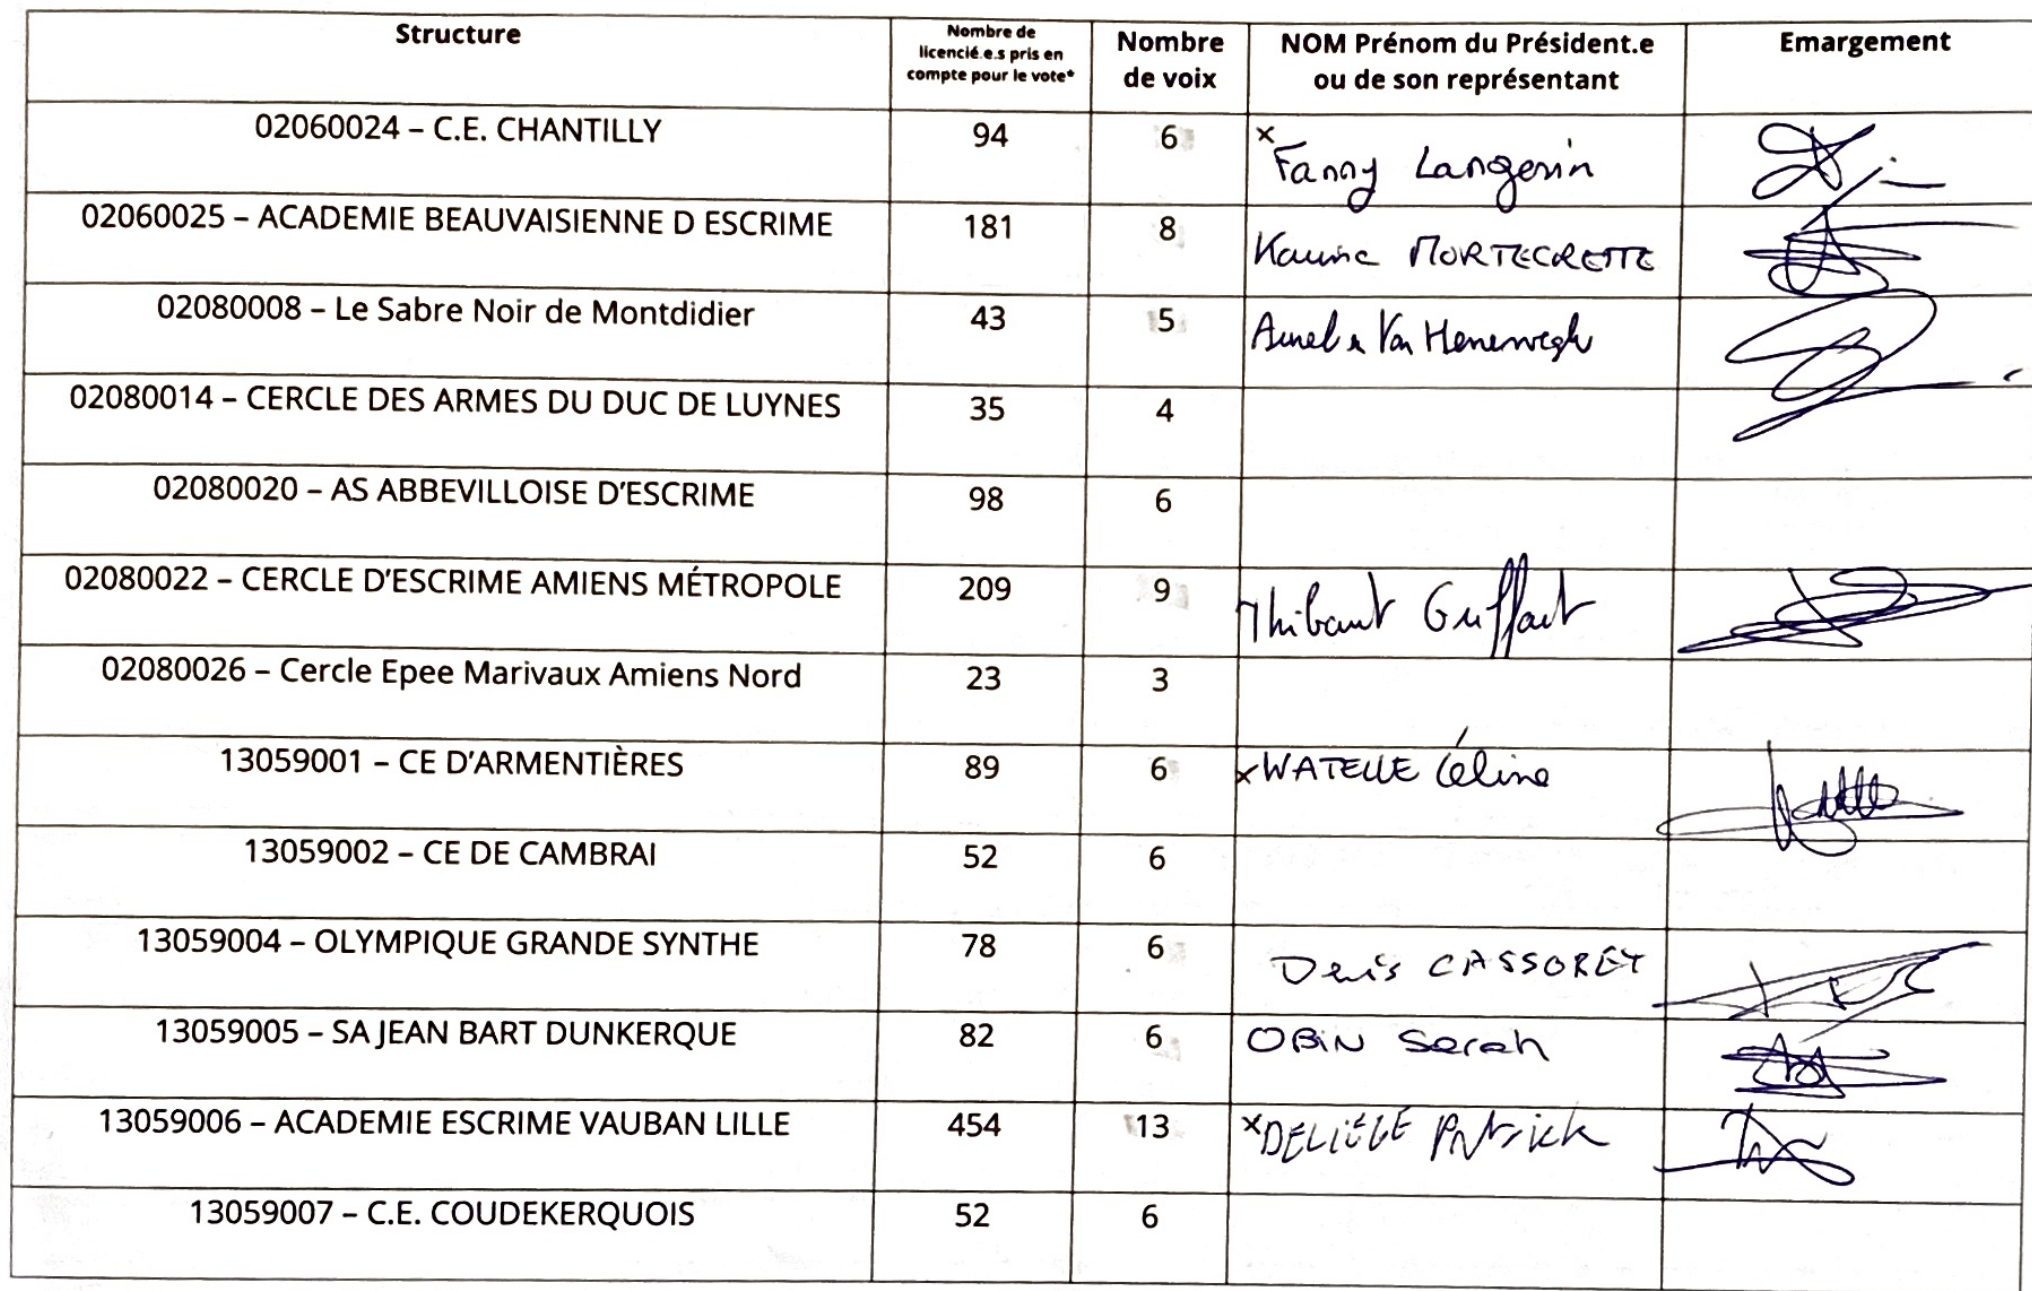 Structure Nombre de licencié.e.s pris en compte pour le vote* Nombre de voix NOM Prénom du Président.e ou de son représentant Emargement
02060024 – C.E. CHANTILLY 94 6 x Fanny Langevin
02060025 – ACADEMIE BEAUVAISIENNE D ESCRIME 181 8 Karine MORTECRETTE
02080008 – Le Sabre Noir de Montdidier 43 5 Van
02080014 – CERCLE DES ARMES DU DUC DE LUYNES 35 4
02080020 – AS ABBEVILLOISE D'ESCRIME 98 6
02080022 – CERCLE D'ESCRIME AMIENS MÉTROPOLE 209 9 Thibaut Griffart
02080026 – Cercle Epee Marivaux Amiens Nord 23 3
13059001 – CE D'ARMENTIÈRES 89 6 x WATELLE Céline
13059002 – CE DE CAMBRAI 52 6
13059004 – OLYMPIQUE GRANDE SYNTHE 78 6 Denis CASSOREY
13059005 – SA JEAN BART DUNKERQUE 82 6 OBIN Sarah
13059006 – ACADEMIE ESCRIME VAUBAN LILLE 454 13 x DELIÈGE Patrick
13059007 – C.E. COUDEKERQUOIS 52 6